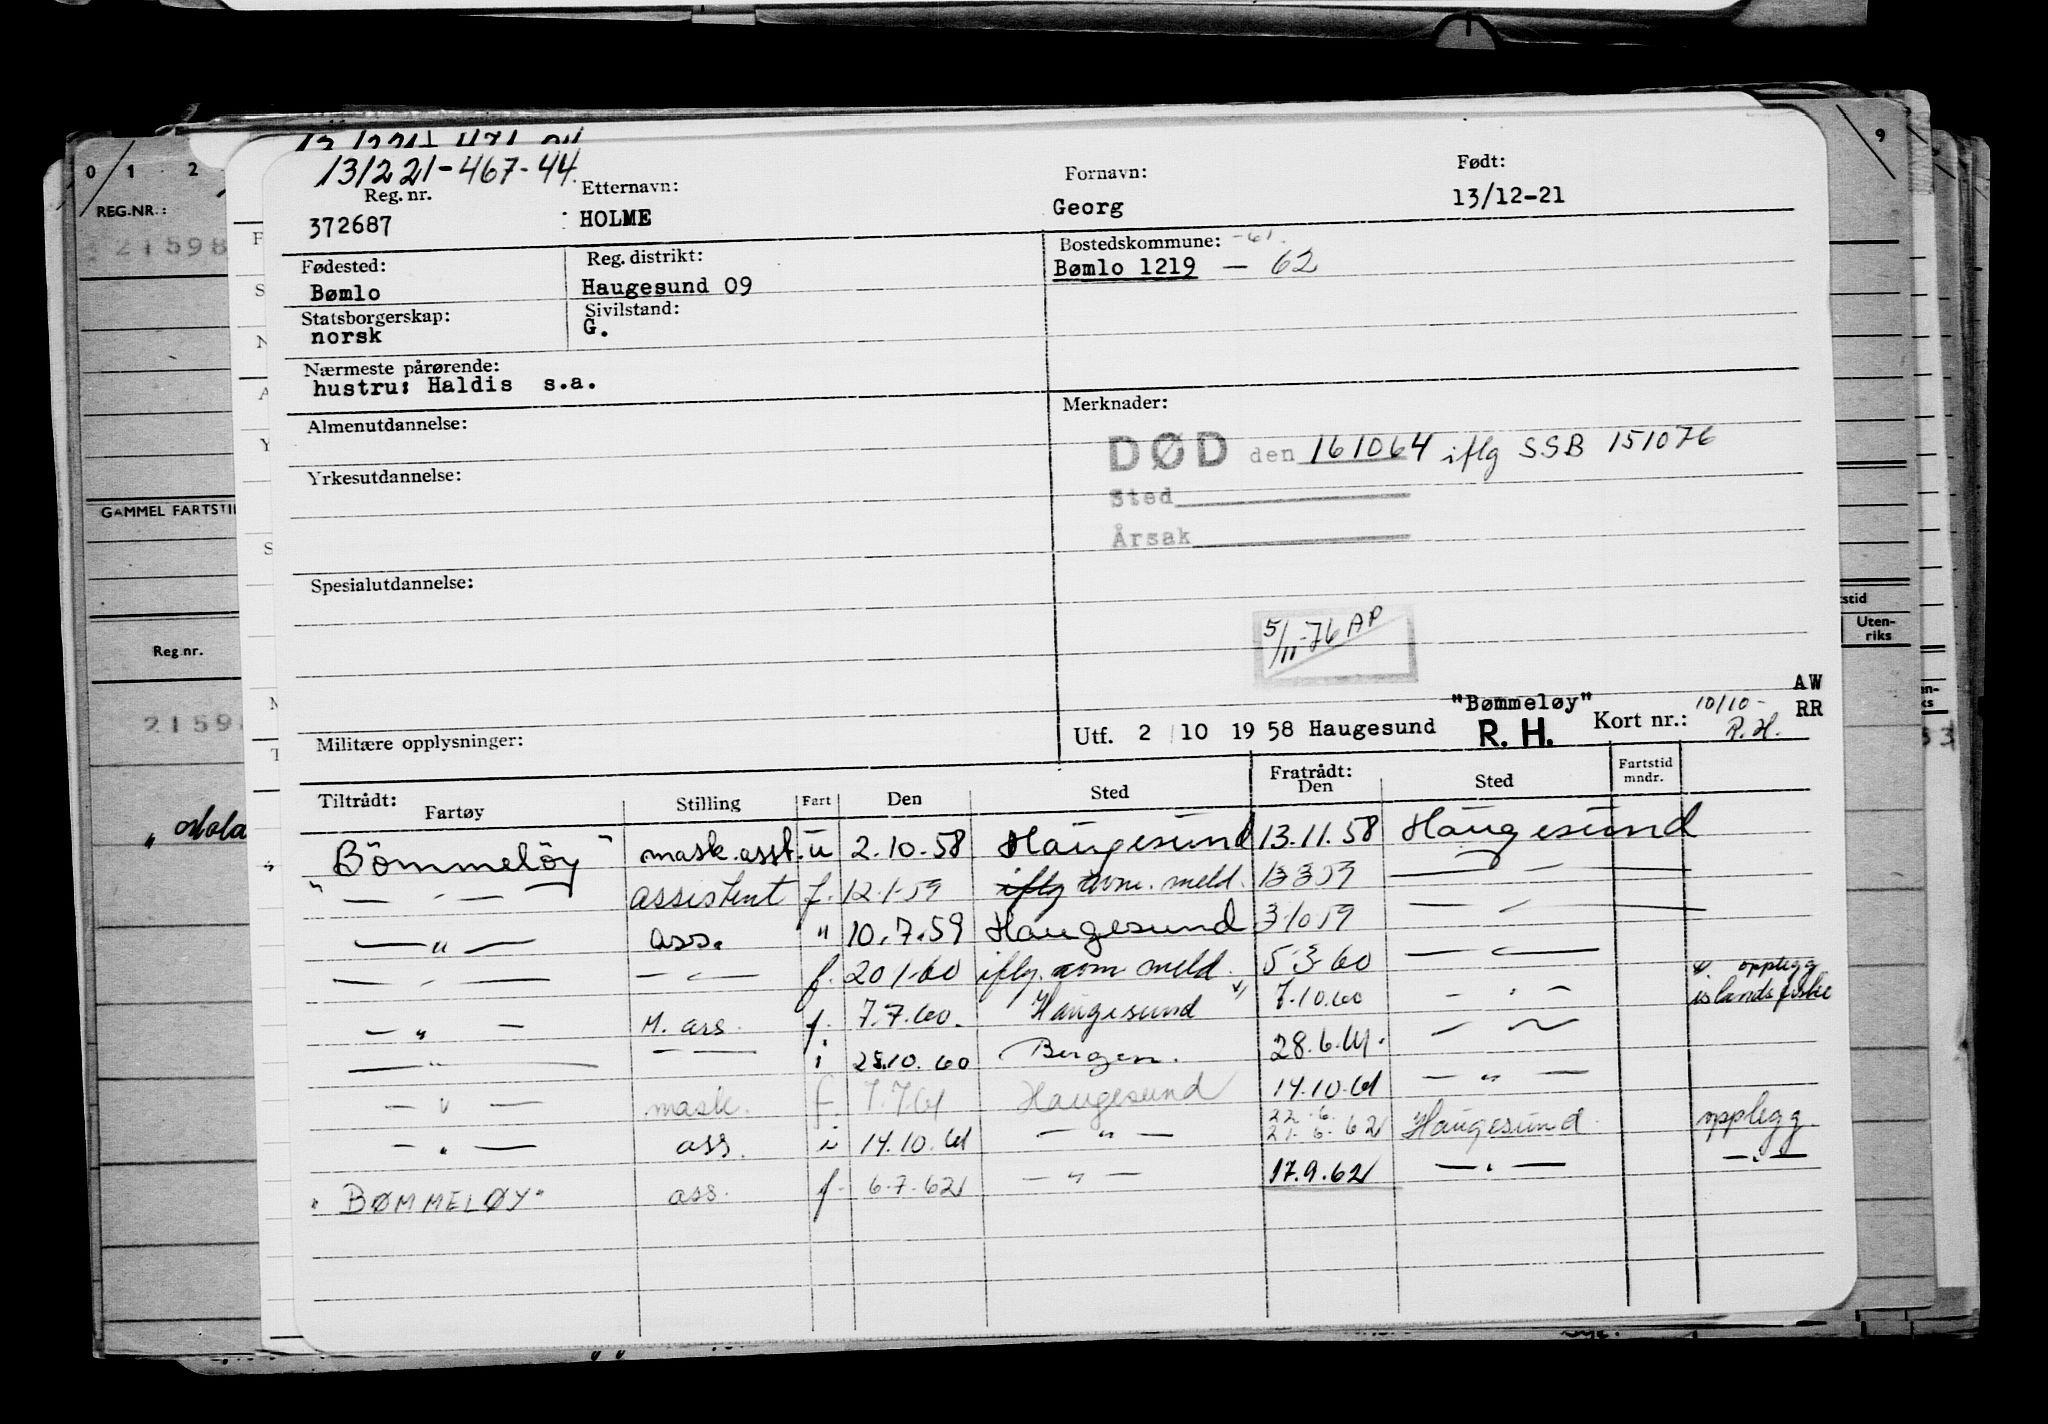 131221-467-44.
Reg. nr. Etternavn: Fornavn: Født:
372687 HOLME Georg 13/12-21
Fødested: Reg. distrikt: Bostedskommune: -61.
Bømlo Haugesund 09 Bømlo 1219 — 62
Statsborgerskap: Sivilstand:
norsk G.
Nærmeste pårørende:
hustru: Haldis s.a.
Almenutdannelse: Merknader:
DØD den 161064 iflg SSB 151076
Yrkesutdannelse: Sted
Årsak
Spesialutdannelse:
5/11-76 AP
"Bømmeløy" 10/10- AW
Militære opplysninger: Utf. 2/10 1958 Haugesund R. H. Kort nr.: R.H. RR
Tiltrådt: Fratrådt: Fartstid mndr.
Fartøy Stilling Fart Den Sted Den Sted
"Bömmelöy" mask.asst. u 2.10.58 Haugesund 13.11.58 Haugesund
— " — assistent f. 12-1-59 iflg avm. meld. 13-3-59 — " —
— " — ass. " 10.7.59 Haugesund 3-10-59 — " —
— " — — " — f. 20-1-60 iflg. avm meld. 5-3-60 — " —
— " — M. ass. f. 7.7.60. Haugesund 7.10.60 — " — v. opplegg islandsfiske
— " — — " — i 25.10.60 Bergen. 28.6.61. — " —
— " — mask. f. 7.7.61 Haugesund 14.10.61 — " —
— " — ass. i 14.10.61 — " — 22.6. 21-6-62 Haugesund. opplegg.
"BØMMELØY" ass. f. 6.7.62 — " — 17.9.62 — " — — " —
0 1 2
REG.NR.:
21598
GAMMEL FARTSTID
Reg nr.
2159
9
Uten-
riks